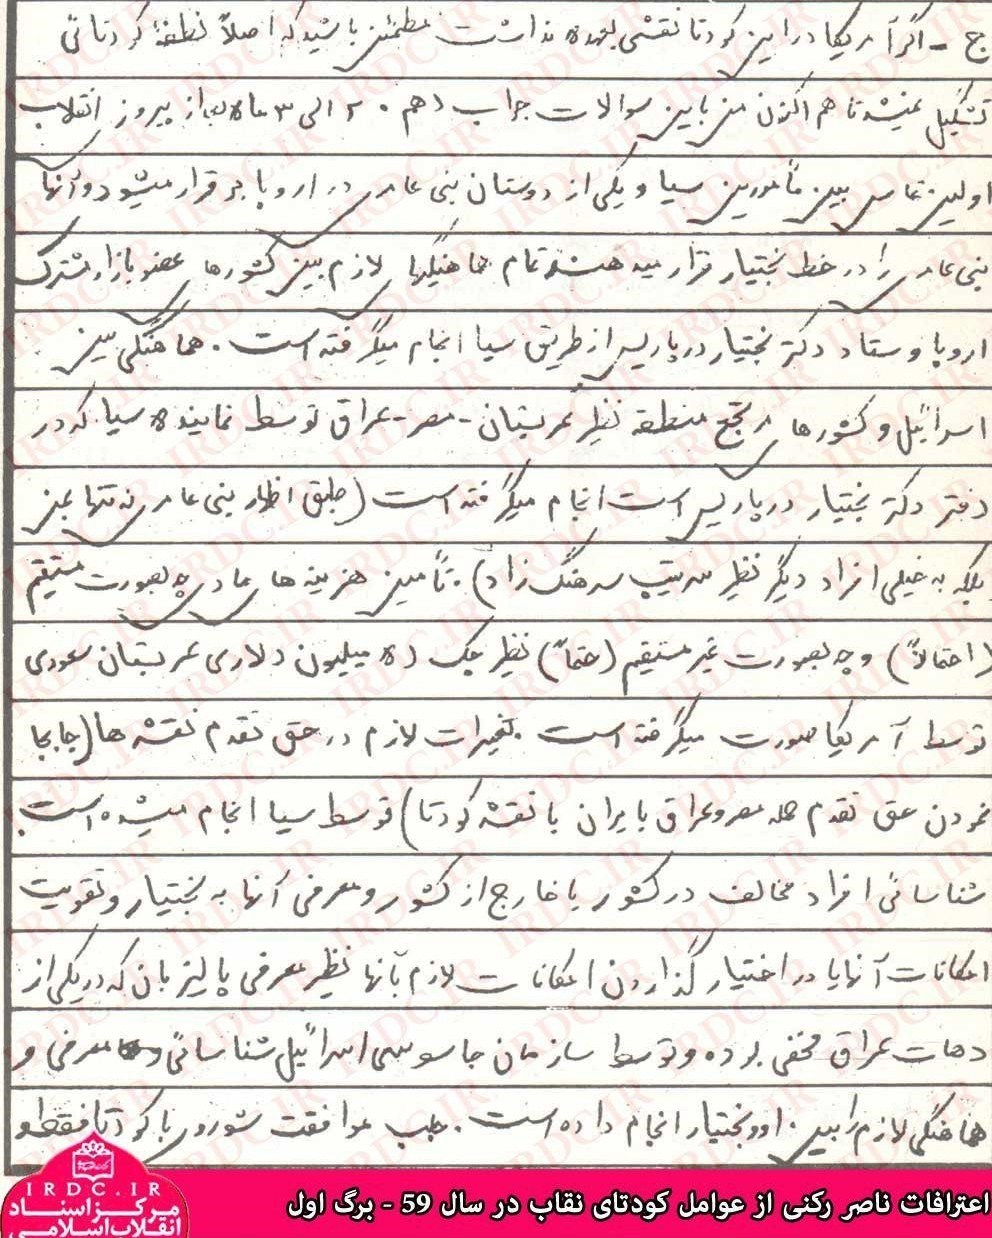 ج - اگر آمریکا در این کودتا نقشی بعهده نداشت مطمئن باشید که اصلاً نطفهٔ کودتائی
تشکیل نمیشد تا هم اکنون من باین سوالات جواب دهم ۰ ۲ الی ۳ ماه بعد از پیروزی انقلاب
اولین تماس بین مأمورین سیا و یکی از دوستان بنی عامری در اروپا برقرار میشود و آنها
بنی عامری را در خط بختیار قرار میدهند تمام هماهنگیها لازم بین کشورها عضو بازار مشترک
اروپا و ستاد دکتر بختیار در پاریس از طریق سیا انجام میگرفته است ۰ هماهنگی بین
اسرائیل و کشورها مرتجع منطقه نظیر عربستان - مصر - عراق توسط نماینده سیا که در
دفتر دکتر بختیار در پاریس است انجام میگرفته است (طبق اظهار بنی عامری نه تنها بمن
بلکه به خیلی افراد دیگر نظیر سرتیپ سرهنگ زاد) ۰ تأمین هزینه ها مادی چه بصورت مستقیم
(احتمالاً) و چه بصورت غیر مستقیم (حتماً) نظیر چک (۵ میلیون دلاری عربستان سعودی
توسط آمریکا صورت میگرفته است ۰ تغییرات لازم در حق تقدم نقشه ها (جابجا
نمودن حق تقدم حمله مصر و عراق بایران با نقشه کودتا) توسط سیا انجام میشده است
شناسائی افراد مخالف در کشور یا خارج از کشور و معرفی آنها به بختیار و تقویت
امکانات آنها یا در اختیار گذاردن امکانات لازم بآنها نظیر معرفی پالیزبان که در یکی از
دهات عراق مخفی بوده و توسط سازمان جاسوسی اسرائیل شناسائی و معرفی و
هماهنگی لازم را بین او و بختیار انجام داده است ۰ جلب موافقت شوروی با کودتا فقط و
IRDC.IR
مرکز اسناد
انقلاب اسلامی
اعترافات ناصر رکنی از عوامل کودتای نقاب در سال 59 - برگ اول